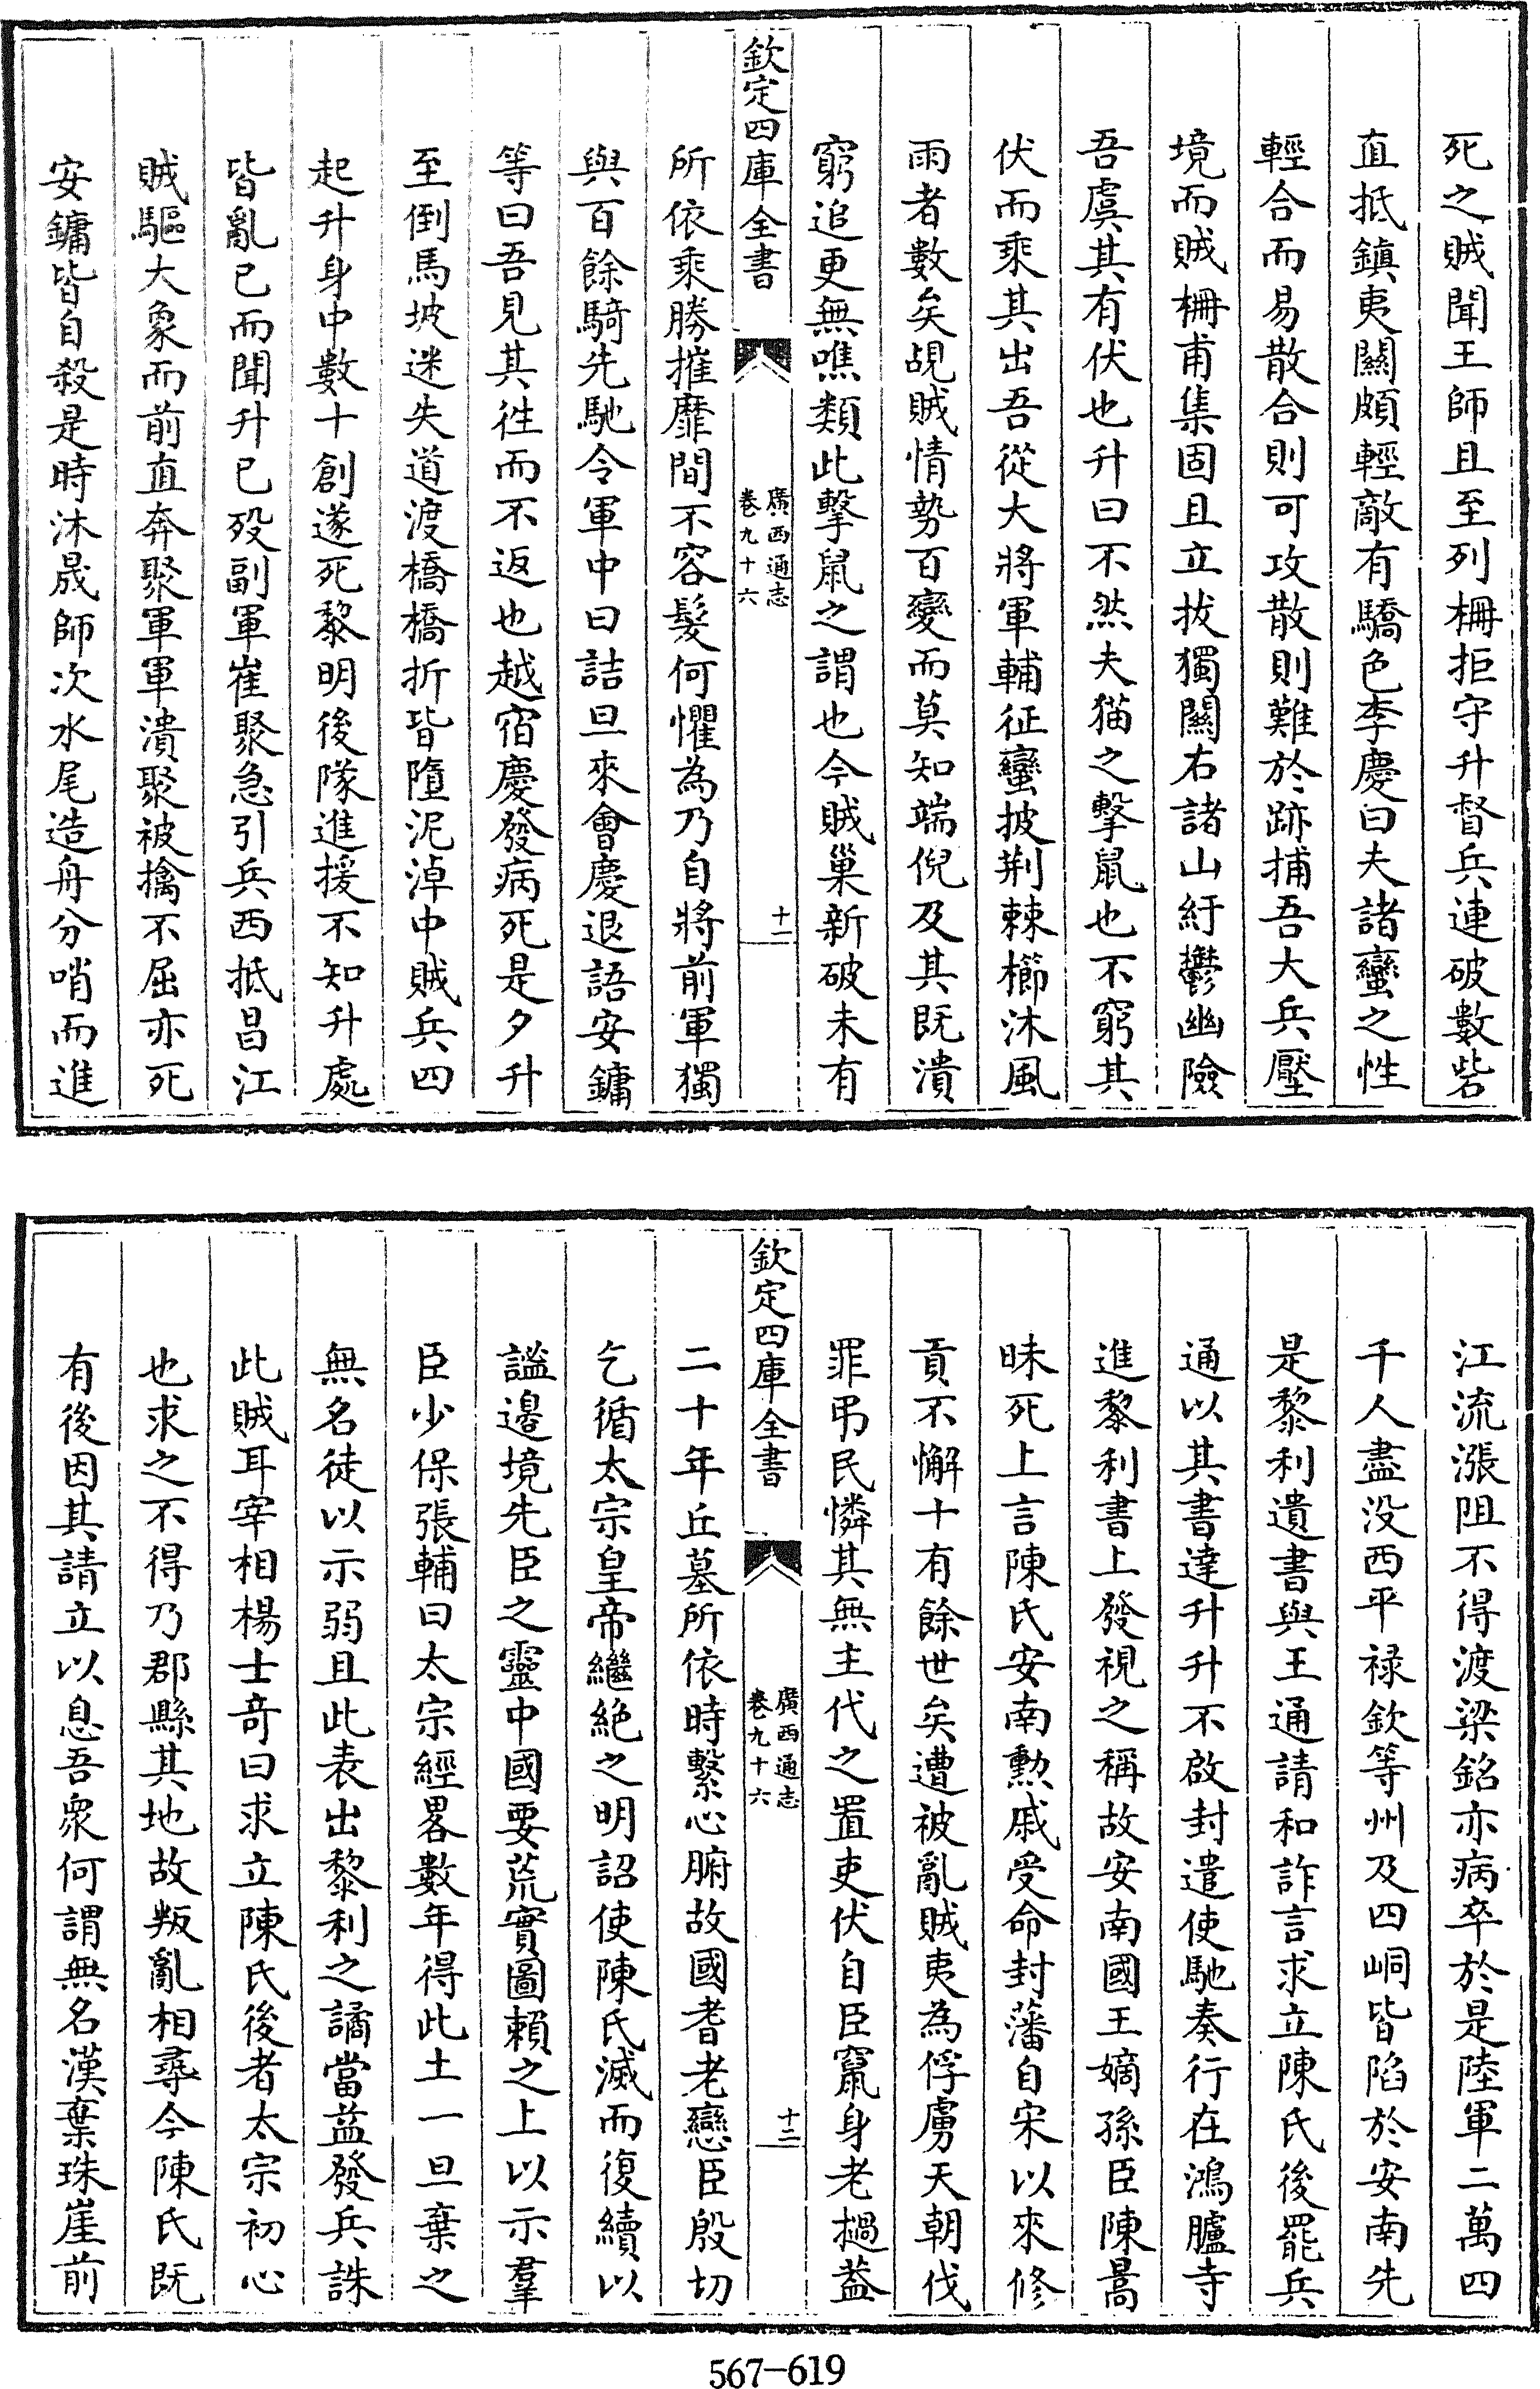 死之賊聞王師且至列柵拒守升督兵連破數砦
直抵鎮夷關頗輕敵有驕色李慶曰夫諸蠻之性
輕合而易散合則可攻散則難於跡捕吾大兵壓
境而賊柵甫集固且立拔獨關右諸山紆鬱幽險
吾虞其有伏也升曰不然夫猫之擊鼠也不窮其
伏而乘其出吾從大將軍輔征蠻披荆棘櫛沐風
雨者數矣覘賊情勢百變而莫知端倪及其既潰
窮追更無噍類此擊鼠之謂也今賊巢新破未有
欽定四庫全書
廣西通志
卷九十六
十一
所依乘勝摧靡間不容髮何懼為乃自將前軍獨
與百餘騎先馳令軍中曰詰旦來會慶退語安鏞
等曰吾見其徃而不返也越宿慶發病死是夕升
至倒馬坡迷失道渡橋橋折皆墮泥淖中賊兵四
起升身中數十創遂死黎明後隊進援不知升處
皆亂已而聞升已歿副軍崔聚急引兵西抵昌江
賊驅大象而前直奔聚軍軍潰聚被擒不屈亦死
安鏞皆自殺是時沐晟師次水尾造舟分哨而進
江流漲阻不得渡梁銘亦病卒於是陸軍二萬四
千人盡没西平禄欽等州及四峒皆陷於安南先
是黎利遺書與王通請和詐言求立陳氏後罷兵
通以其書達升升不啟封遣使馳奏行在鴻臚寺
進黎利書上發視之稱故安南國王嫡孫臣陳暠
昧死上言陳氏安南勲戚受命封藩自宋以來修
貢不懈十有餘世矣遭被亂賊夷為俘虜天朝伐
罪弔民憐其無主代之置吏伏自臣竄身老撾葢
欽定四庫全書
廣西通志
卷九十六
十二
二十年丘墓所依時繫心腑故國耆老戀臣殷切
乞循太宗皇帝繼絶之明詔使陳氏滅而復續以
謐邊境先臣之靈中國要荒實圖賴之上以示羣
臣少保張輔曰太宗經畧數年得此土一旦棄之
無名徒以示弱且此表出黎利之譎當益發兵誅
此賊耳宰相楊士竒曰求立陳氏後者太宗初心
也求之不得乃郡縣其地故叛亂相尋今陳氏既
有後因其請立以息吾衆何謂無名漢棄珠崖前
567-619